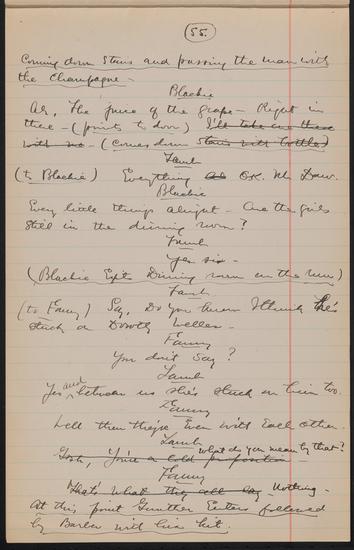 (55.)
Coming down Stairs and passing the man with
the Champagne -
Blackie
Ah, The juice of the grape - Right in
there - (points to door) I'll take one these
with me - (comes down Stairs with bottle)
Lamb
(to Blackie) Everything OK. Mr Daw.
Blackie
Every little things alright - Are the girls
Still in the dinning room?
Lamb
Yes sir -
(Blackie Exits Dinning room on the run)
Lamb
(to Fanny) Say, Do you know I think he's
stuck on Dorothy Weller -
Fanny
You don't say?
Lamb
Yes and between us she's stuck on him too.
Fanny
Well then theyre Even with Each other.
Lamb
Gosh, You're a cold proposition - what do you mean by that?
Fanny
That's what they all say - Nothing -
At this point Gunther Enters followed
by Barber with his kit.